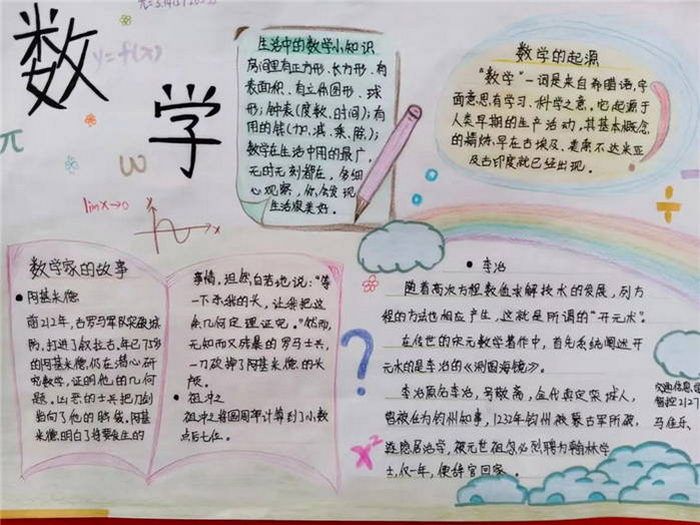 数学
y=f(x)
π
ω
lim x→0
y
x
生活中的数学小知识
房间里有正方形、长方形、有
表面积、有立体图形、球
形；钟表(度数、时间)；有
用的钱(加、减、乘、除)；
数学在生活中用的最广，
无时无刻都在，多细
心观察，你会发现
生活很美好。
数学的起源
“数学”一词是来自希腊语，字
面意思有学习、科学之意。它起源于
人类早期的生产活动，其基本概念
的精炼，早在古埃及、美索不达米亚
及古印度就已经出现。
数学家的故事
阿基米德
前212年，古罗马军队突破城
防，打进了叙拉古，年已75岁
的阿基米德，仍在潜心研
究数学，证明他的几何
题。凶恶的士兵把刀剑
指向了他的
阿基
米德明白了将要发生的
事情，坦然自若地说：“等
一下杀我的头，让我把这
条几何定理证完。”然而，
无知而又残暴的罗马士兵，
一刀砍掉了阿基米德的头
颅。
祖冲之
祖冲之将圆周率计算到了小数
点后七位。
?
x²
李冶
随着高次方程数值求解技术的发展，列方
程的方法也相应产生，这就是所谓的“开元术”。
在传世的宋元数学著作中，首先系统阐述开
元术的是李冶的《测圆海镜》。
李冶原名李治，号敬斋，金代真定栾城人，
曾被任为钧州知事，1232年钧州被蒙古军所破，
遂隐居治学，被元世祖忽必烈聘为翰林学
士，仅一年，便辞官回家。
÷
交通信息
智控2127
马佳乐